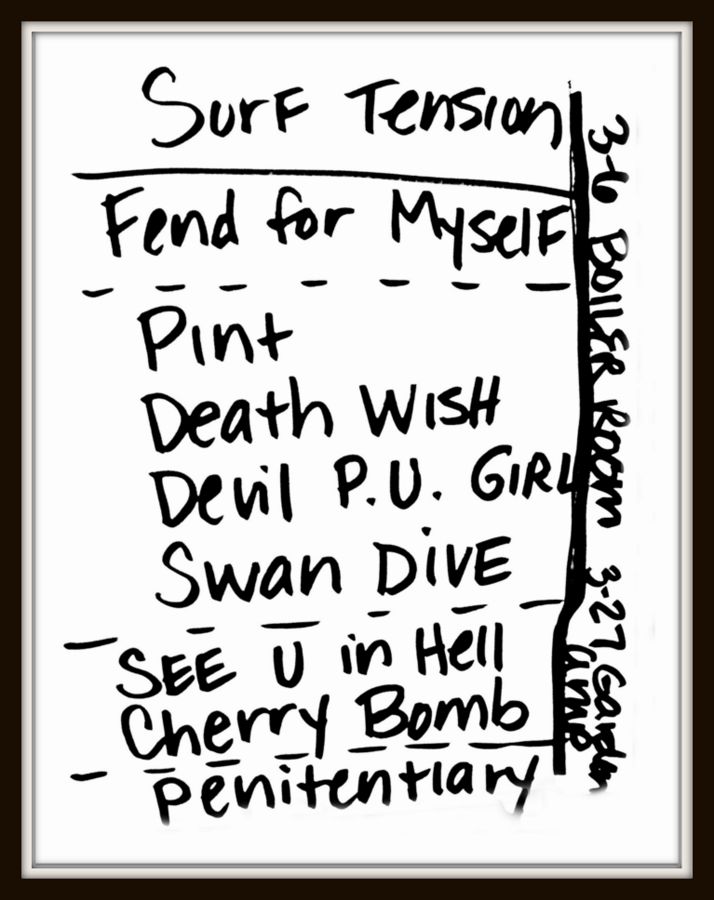 Surf Tension
Fend for Myself
Pint
Death Wish
Devil P.U. Girl
Swan Dive
SEE U in Hell
Cherry Bomb
Penitentiary
3-6 Boiler Room 3-27 Garden